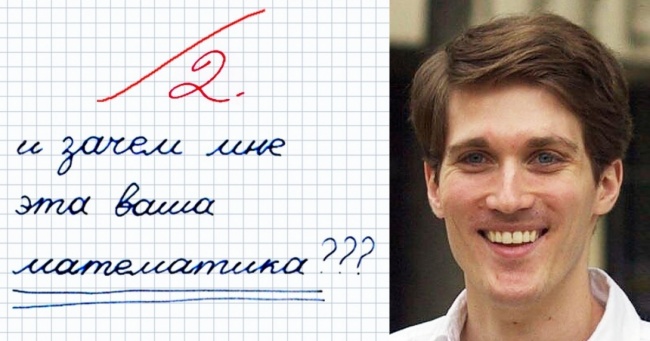 2.
и зачем мне
эта ваша
математика???